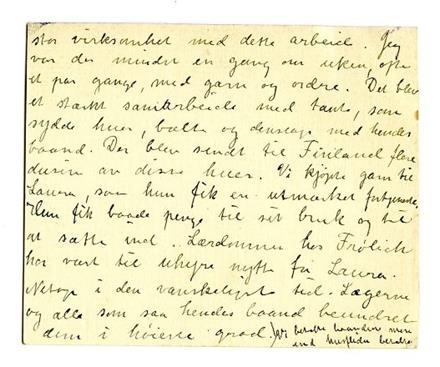 stor virksomhet med dette arbeid. Jeg
var der mindst en gang om uken, ofte
et par gange, med garn og ordre. Det blev
et stærkt samarbeide med tante, som
sydde huer, balta og med hendes
baand. Der blev sendt til Finland flere
dusin av disse huer. Vi kjøpte garn til
Laura, som hun fik en utmærket fortjeneste.
Hun fik baade penge til sit bruk og til
at sætte ind. Lærdommen hos Frölich
har vært til uhyre nytte for Laura.
Netop i den vanskeligste tid. Lægerne
og alle som saa hendes baand beundret
dem i høieste grad. Vi betalte baandene mere
end husfliden betalte